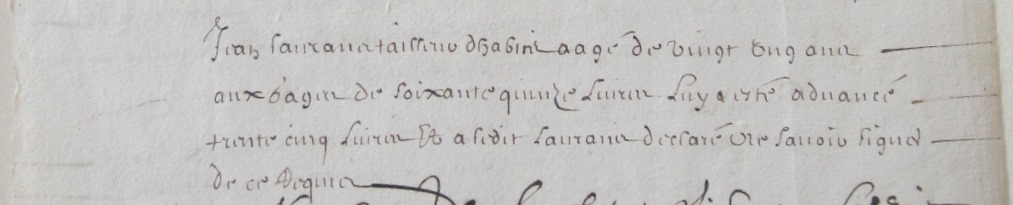 Jean Sauvaner tailleur d'habitz aagé de vingt ung ans
aux gages de soixante quinze livres Luy a esté advancé
trente cinq livres Et a ledit Sauvaner declaré ne savoir signer
de ce requis